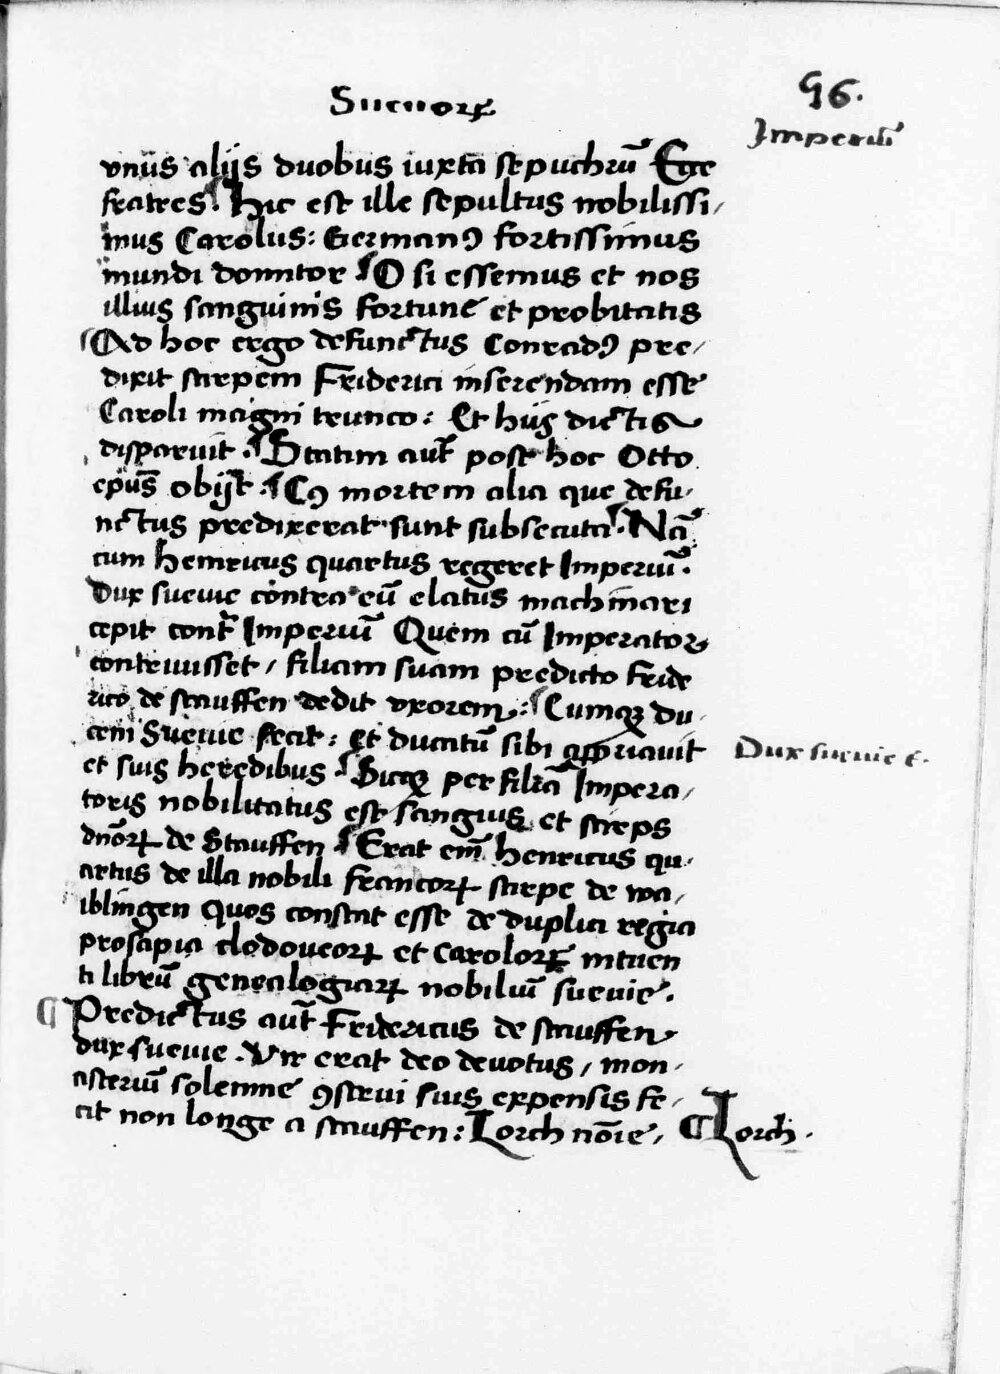 Sueuorꝝ
96.
Imperiū
vnus alijs duobus iuxta sepuchrū Ecce
fratres. Hic est ille sepultus nobilissi/
mus Carolus: Germanꝰ fortissimus
mundi domitor O si essemus et nos
illius sanguinis fortune et probitatis
Ad hoc ergo defunctus Conradꝰ pre/
dixit stirpem Friderici inserendam esse
Caroli magni trunco: Et hijs dictis
disparuit. Statim aut̄ post hoc Otto
ep̄us obijt. Cꝰ mortem alia que defu/
nctus predixerat sunt subsecuta. Nā
cum Henricus quartus regeret Imperiū.
Dux sueuie contra eū elatus machinari
cepit cont̄ Imperiū Quem cū Imperator
contriuisset / filiam suam predicto Fride
rico de stauffen dedit vxorem: Cumqꝫ du/
cem Sueuie fecit: et ducatū sibi appriauit
Dux sueuie
et suis heredibus. Sicqꝫ per filiā Impera/
toris nobilitatus est sanguis et stirps
dn̄orꝝ de Stauffen. Erat em̄ Henricus qu/
artus de illa nobili francorꝝ stirpe de wa/
iblingen Quos constat esse de duplici regia
prosapia clodoueorꝝ et Carolorꝝ intuen
ti librū genealogiarꝝ nobiliū sueuie.
¶ Predictus aut̄ Fridericus de stauffen
dux sueuie. Vir erat deo deuotus / mon/
asteriū solemne ꝯstrui suis expensis fe/
cit non longe a stauffen: Lorch noīe /
¶ Lorch.